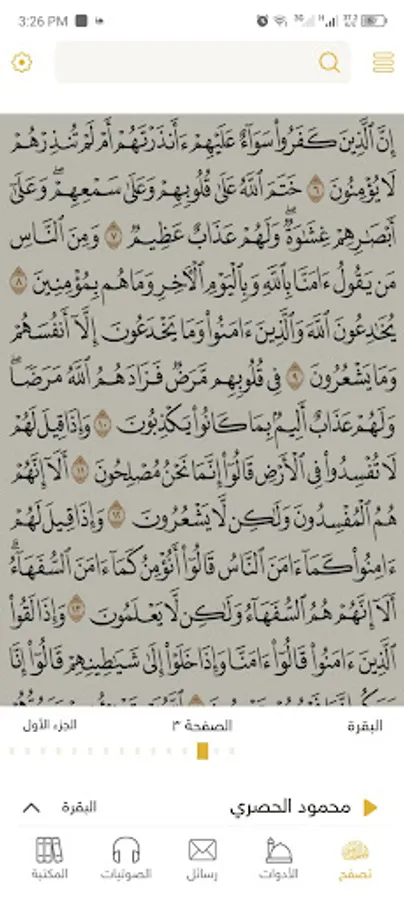 3:26 PM
إِنَّ ٱلَّذِينَ كَفَرُواْ سَوَآءٌ عَلَيْهِمْ ءَأَنذَرْتَهُمْ أَمْ لَمْ تُنذِرْهُمْ
لَا يُؤْمِنُونَ ٦ خَتَمَ ٱللَّهُ عَلَىٰ قُلُوبِهِمْ وَعَلَىٰ سَمْعِهِمْۖ وَعَلَىٰٓ
أَبْصَٰرِهِمْ غِشَٰوَةٌۖ وَلَهُمْ عَذَابٌ عَظِيمٌ ٧ وَمِنَ ٱلنَّاسِ
مَن يَقُولُ ءَامَنَّا بِٱللَّهِ وَبِٱلْيَوْمِ ٱلْأٓخِرِ وَمَا هُم بِمُؤْمِنِينَ ٨
يُخَٰدِعُونَ ٱللَّهَ وَٱلَّذِينَ ءَامَنُواْ وَمَا يَخْدَعُونَ إِلَّآ أَنفُسَهُمْ
وَمَا يَشْعُرُونَ ٩ فِى قُلُوبِهِم مَّرَضٌ فَزَادَهُمُ ٱللَّهُ مَرَضًاۖ
وَلَهُمْ عَذَابٌ أَلِيمٌۢ بِمَا كَانُواْ يَكْذِبُونَ ١٠ وَإِذَا قِيلَ لَهُمْ
لَا تُفْسِدُواْ فِى ٱلْأَرْضِ قَالُوٓاْ إِنَّمَا نَحْنُ مُصْلِحُونَ ١١ أَلَآ إِنَّهُمْ
هُمُ ٱلْمُفْسِدُونَ وَلَٰكِن لَّا يَشْعُرُونَ ١٢ وَإِذَا قِيلَ لَهُمْ
ءَامِنُواْ كَمَآ ءَامَنَ ٱلنَّاسُ قَالُوٓاْ أَنُؤْمِنُ كَمَآ ءَامَنَ ٱلسُّفَهَآءُۗ
أَلَآ إِنَّهُمْ هُمُ ٱلسُّفَهَآءُ وَلَٰكِن لَّا يَعْلَمُونَ ١٣ وَإِذَا لَقُواْ
ٱلَّذِينَ ءَامَنُواْ قَالُوٓاْ ءَامَنَّا وَإِذَا خَلَوْاْ إِلَىٰ شَيَٰطِينِهِمْ قَالُوٓاْ إِنَّا
البقرة الصفحة ٣ الجزء الأول
محمود الحصري البقرة
تصفح الأدوات رسائل الصوتيات المكتبة